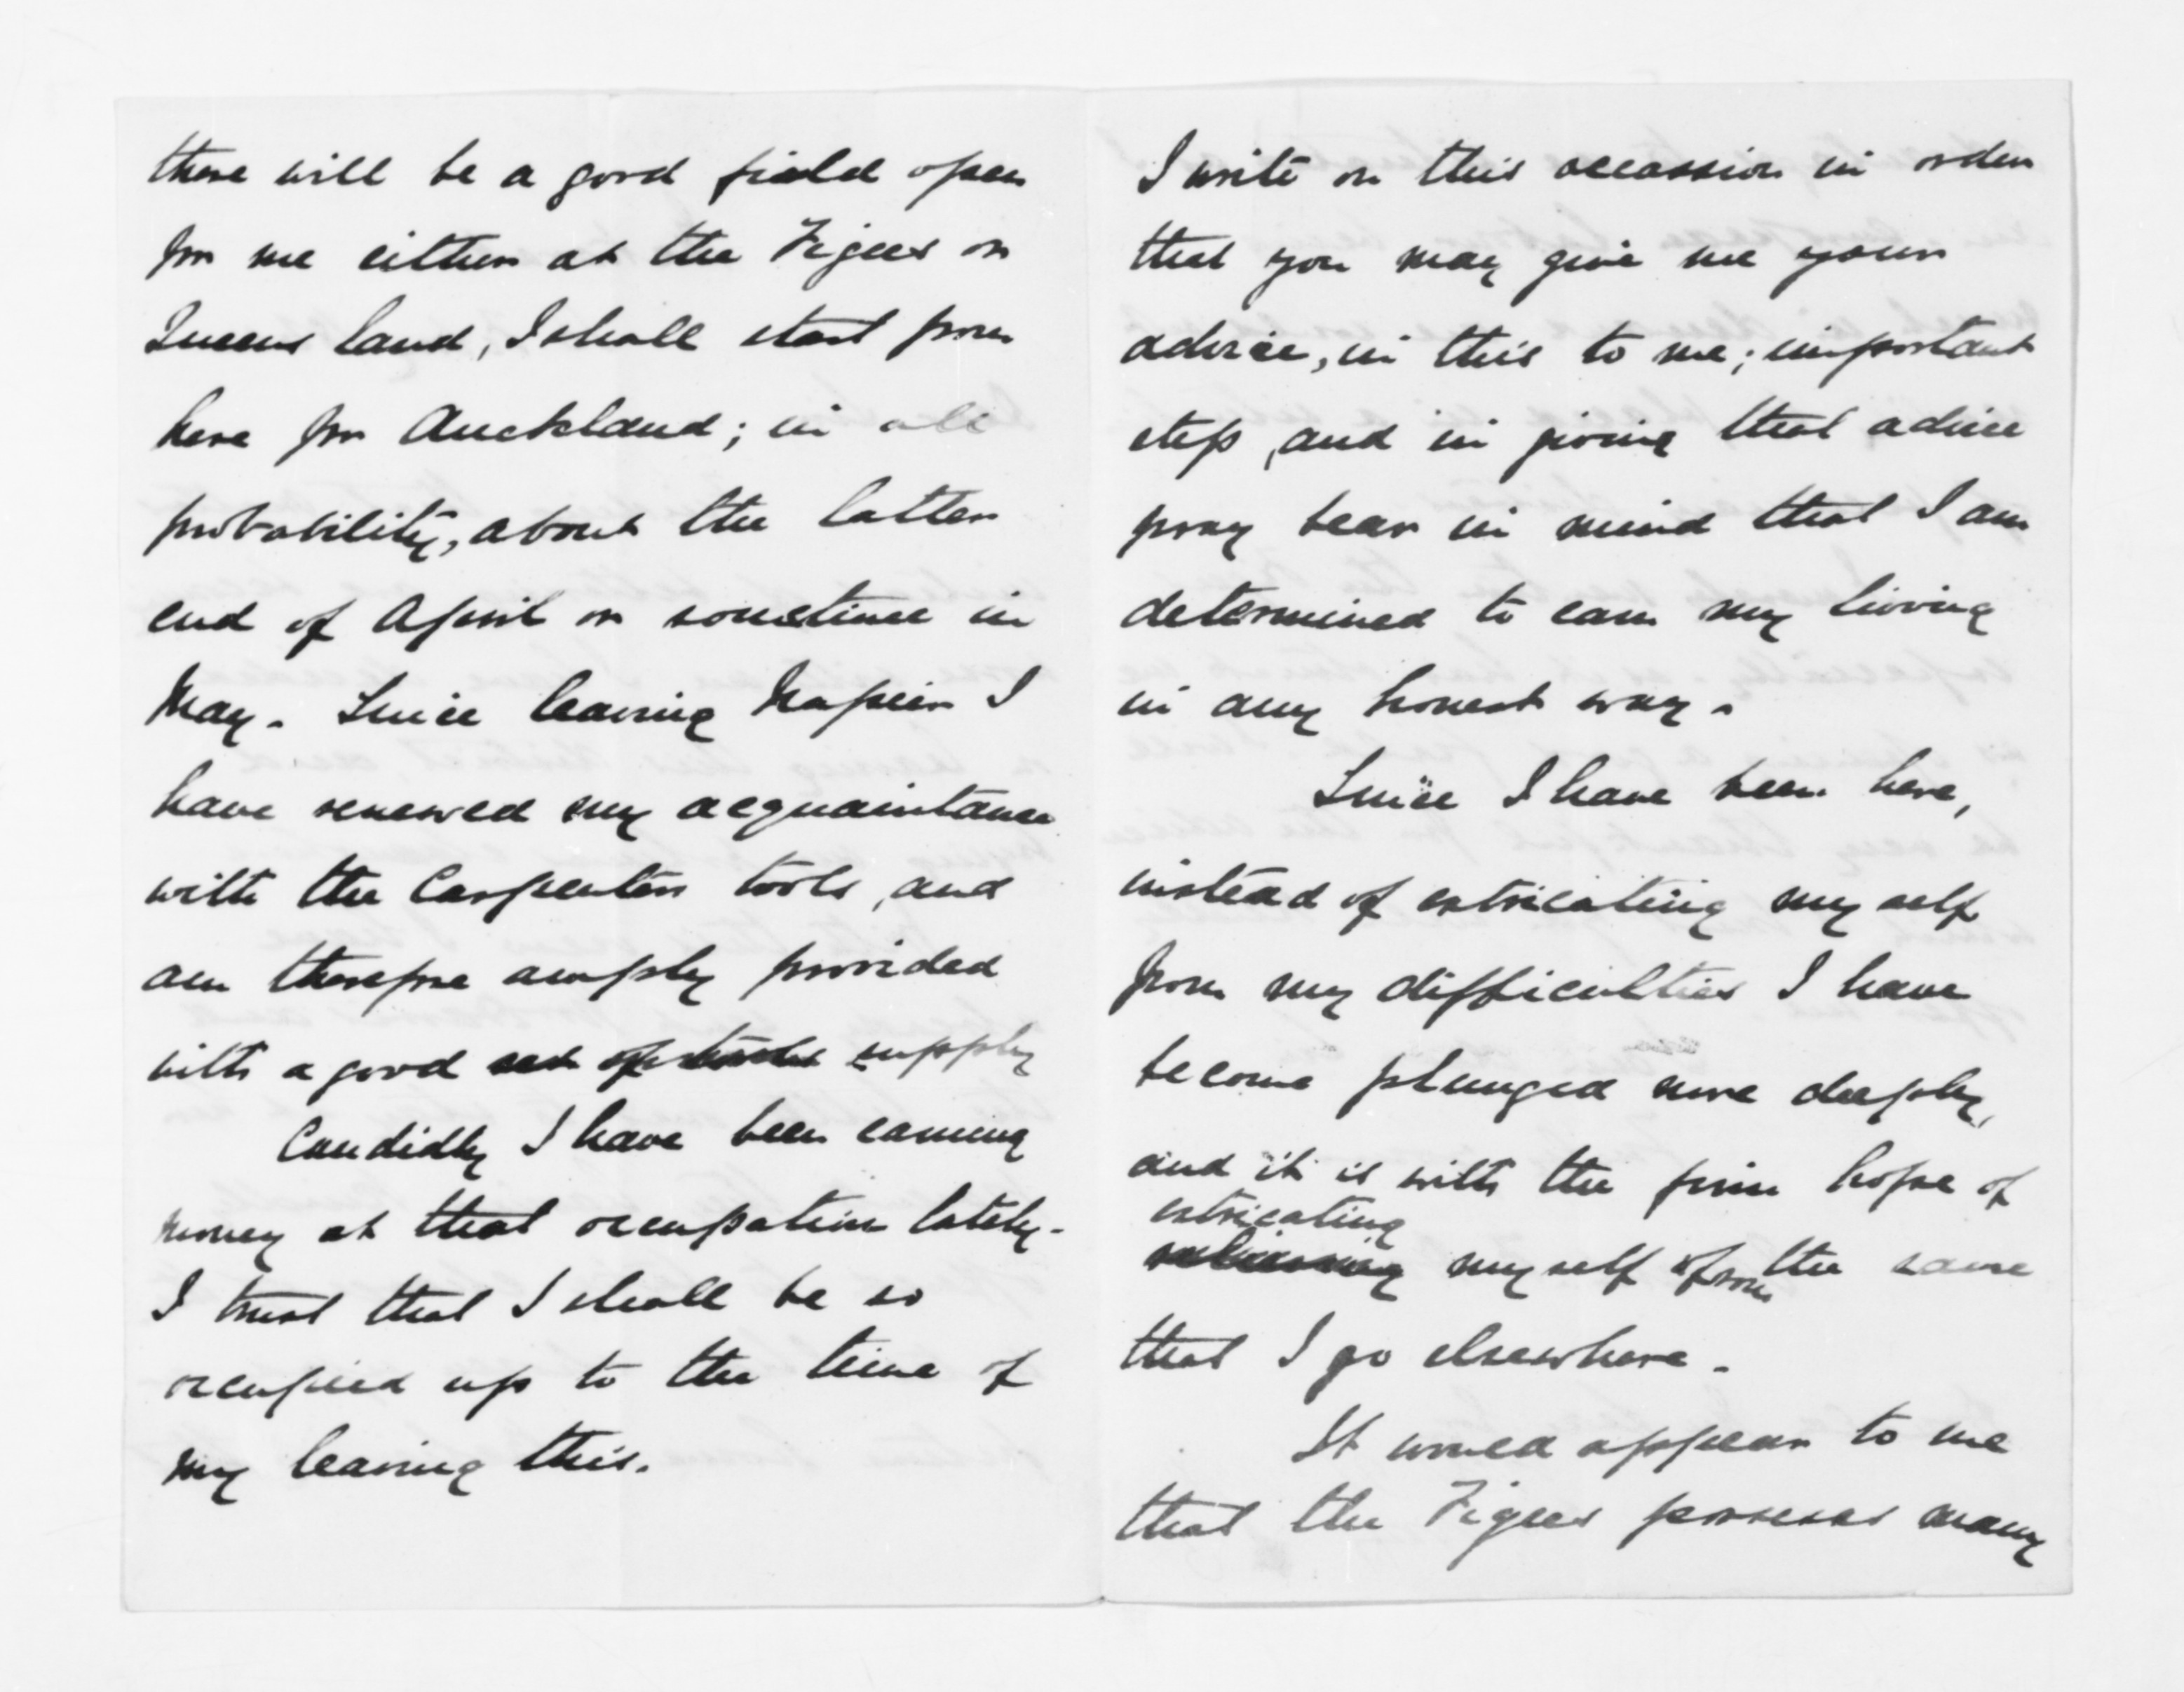 there will be a good field open
for me either at the Figees or
Queens land, I shall start from
here for Auckland; in all
probability, about the latter
end of April or sometime in
May. Since leaving Napier I
have renewed my acquaintance
with the Carpenters tools, and
am therefore amply provided
with a good set of tools supply
Candidly I have been earning
money at that occupation lately.
I trust that I shall be so
occupied up to the time of
my leaving this.
I write on this occassion in order
that you may give me your
advice, in this to me; important
step, and in giving that advice
pray bear in mind that I am
determined to earn my living
in any honest way.
Since I have been here,
instead of extricating my self
from my difficulties I have
become plunged more deeply,
and it is with the firm hope of
extricating
my self of from the same
that I go elsewhere.
It would appear to me
that the Figees possesses many